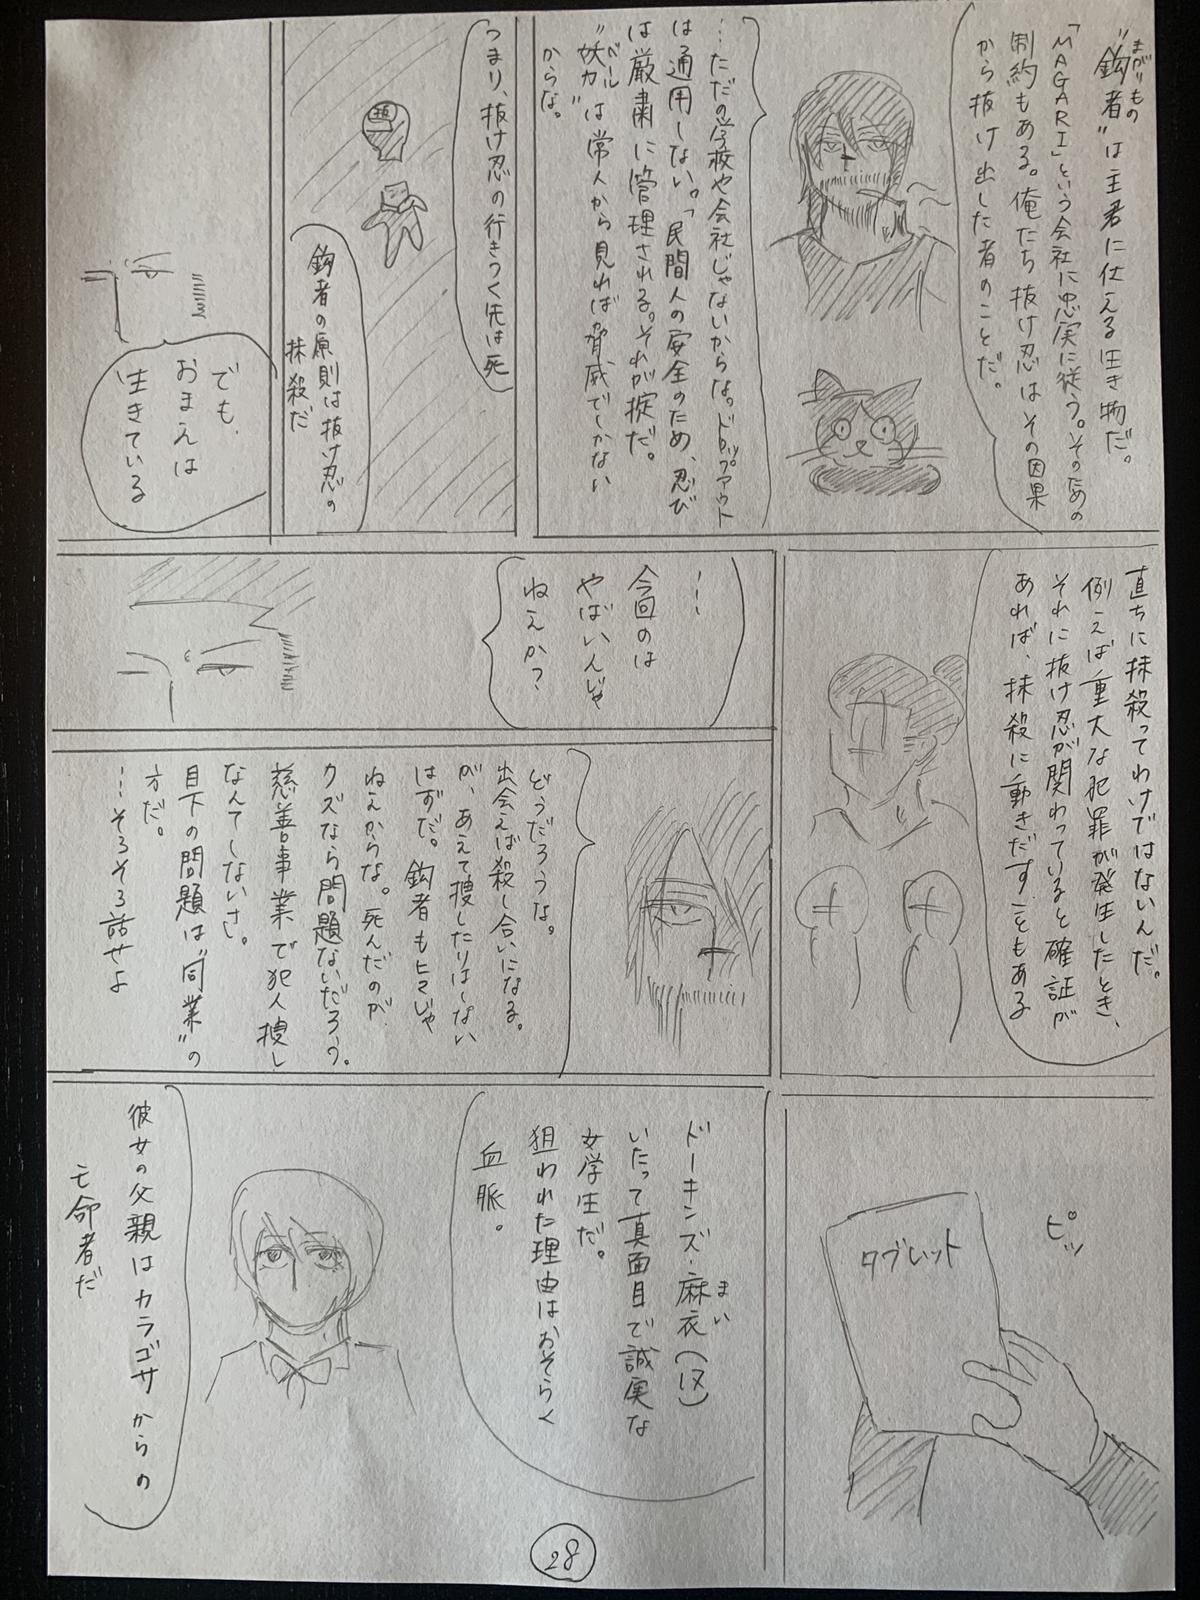 まがりもの
"鈎者"は主君に仕える生き物だ。
「MAGARI」という会社に忠実に従う。そのための
制約もある。俺たち抜け忍はその因果
から抜け出した者のことだ。
…ただの学校や会社じゃないからな。ドロップアウト
は通用しない。「民間人の安全のため、忍び
は厳粛に管理される。それが掟だ。
ベル
"妖力"は常人から見れば脅威でしかない
からな。
つまり、抜け忍の行きつく先は死
抜
鈎者の原則は抜け忍の
抹殺だ
でも、
おまえは
生きている
直ちに抹殺ってわけではないんだ。
例えば重大な犯罪が発生したとき、
それに抜け忍が関わっていると確証が
あれば、抹殺に動きだすこともある
…
今回のは
やばいんじゃ
ねえか?
どうだろうな。
出会えば殺し合いになる。
が、あえて捜したりはしない
はずだ。鈎者もヒマじゃ
ねえからな。死んだのが
クズなら問題ないだろう。
慈善事業で犯人捜し
なんてしないさ。
目下の問題は"同業"の
方だ。
…そろそろ話せよ
ピッ
タブレット
ドーキンズ・麻衣(17)
まい
いたって真面目で誠実な
女学生だ。
狙われた理由はおそらく
血脈。
彼女の父親はカラゴサからの
亡命者だ
28